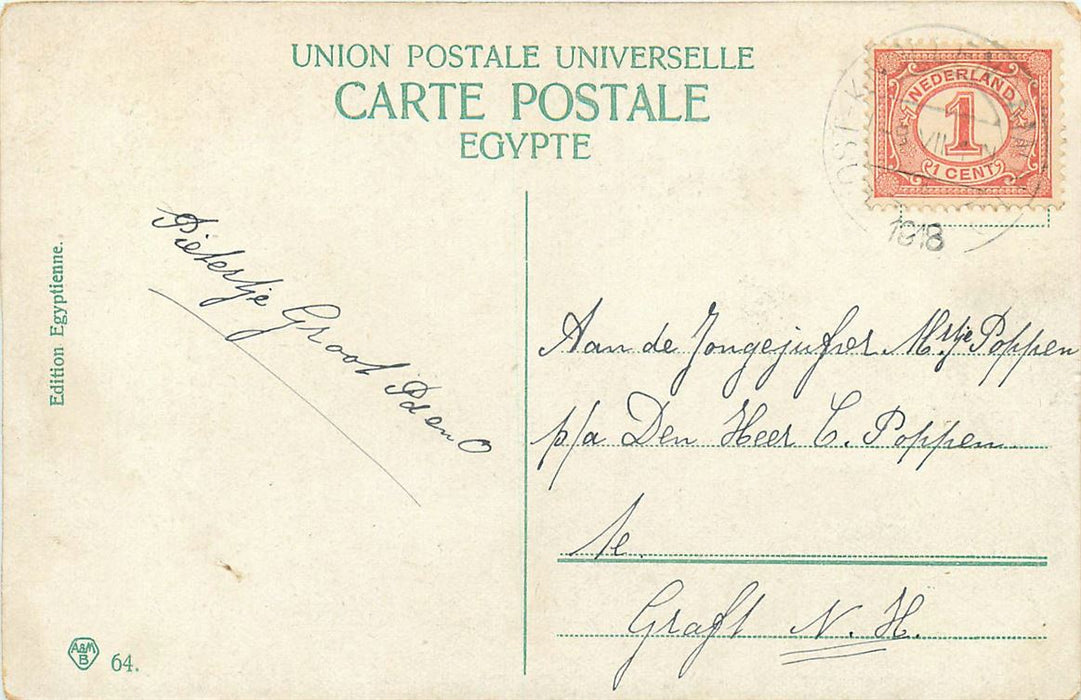 UNION POSTALE UNIVERSELLE
CARTE POSTALE
EGYPTE
NEDERLAND
1
1 CENT
1918
Edition Egyptienne.
Pietertje Groot
Aan de Jongejufer Mrtje Poppen
p/a Den Heer C. Poppen
te
Graft N. H.
A&M
B
64.